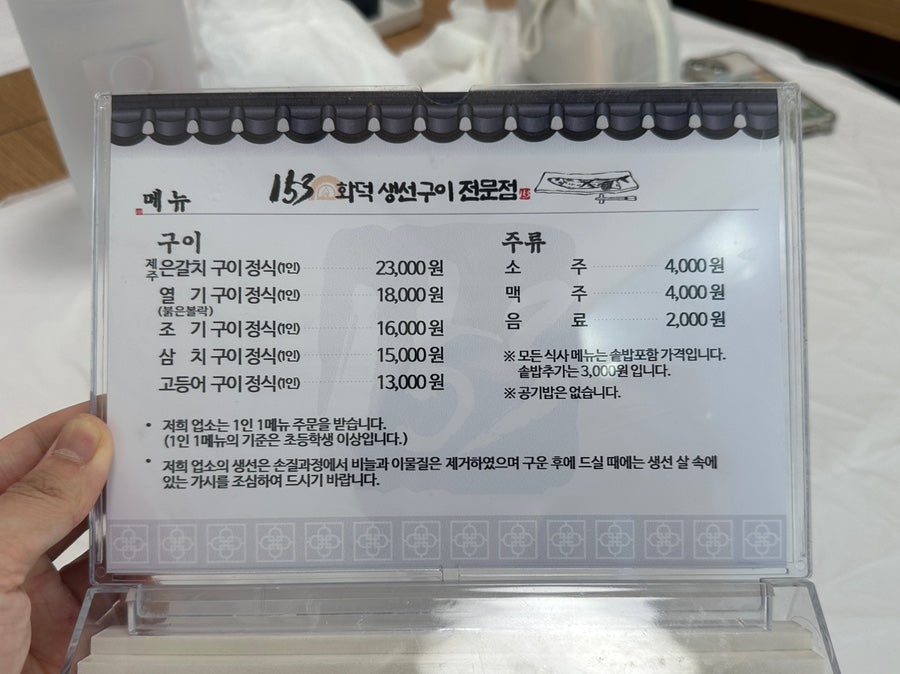 메뉴
153 화덕 생선구이 전문점
구이
제주 은갈치 구이 정식(1인) 23,000원
열 기 구이 정식(1인) 18,000원
(붉은볼락)
조 기 구이 정식(1인) 16,000원
삼 치 구이 정식(1인) 15,000원
고등어 구이 정식(1인) 13,000원
주류
소 주 4,000원
맥 주 4,000원
음 료 2,000원
※ 모든 식사 메뉴는 솥밥포함 가격입니다.
솥밥추가는 3,000원 입니다.
※ 공기밥은 없습니다.
• 저희 업소는 1인 1메뉴 주문을 받습니다.
(1인 1메뉴의 기준은 초등학생 이상입니다.)
• 저희 업소의 생선은 손질과정에서 비늘과 이물질은 제거하였으며 구운 후에 드실 때에는 생선 살 속에
있는 가시를 조심하여 드시기 바랍니다.